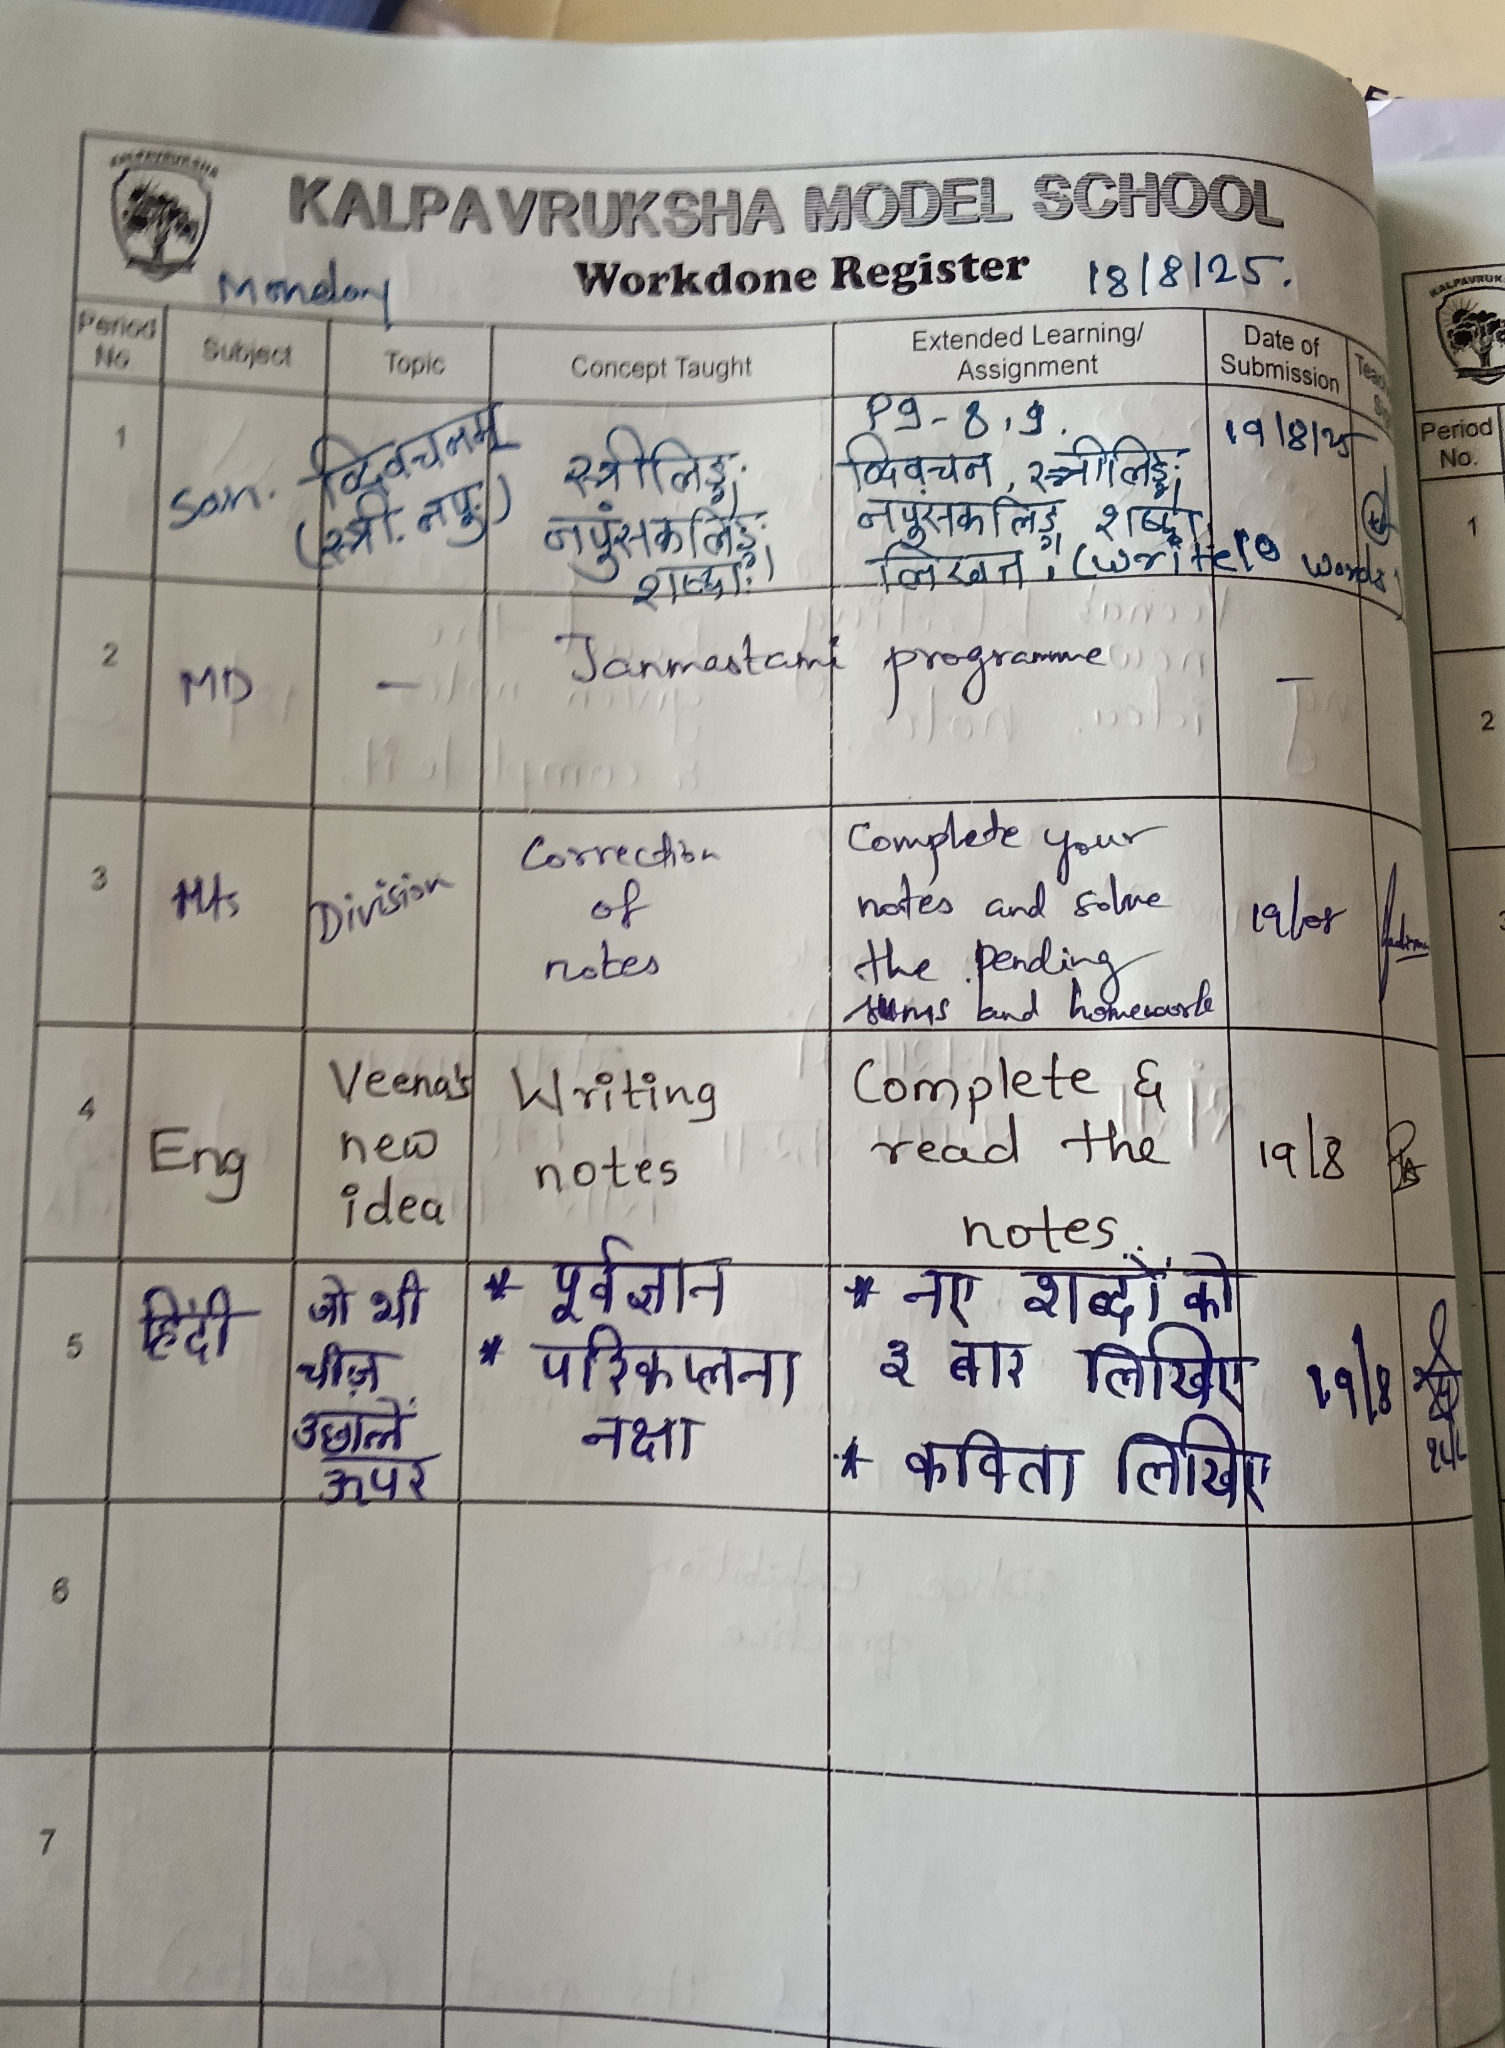 KALPAVRUKSHA
KALPAVRUKSHA MODEL SCHOOL
Monday Workdone Register 18/8/25.
Period No. Subject Topic Concept Taught Extended Learning/ Assignment Date of Submission
1
San.
द्विवचनम्
(स्त्री. नपुं)
स्त्रीलिङ्ग,
नपुंसकलिङ्ग
शब्दाः।
Pg - 8,9.
द्विवचन, स्त्रीलिङ्ग,
नपुंसकलिङ्ग शब्दाः
लिखत। (write 10 words)
19/8/25
2
MD
—
Janmastami programme
—
3
Mts
Division
Correction
of
notes
Complete your
notes and solve
the pending
sums and homework
19/08
4
Eng
Veena's
new
idea
Writing
notes
Complete &
read the
notes.
19/8
5
हिंदी
जो भी
चीज़
उछालें
ऊपर
* पूर्वज्ञान
* परिकप्लना
नक्षा
* नए शब्दों को
३ बार लिखिए
* कविता लिखिए
19/8
6
7
KALPAVRUK
Period
No.
1
2